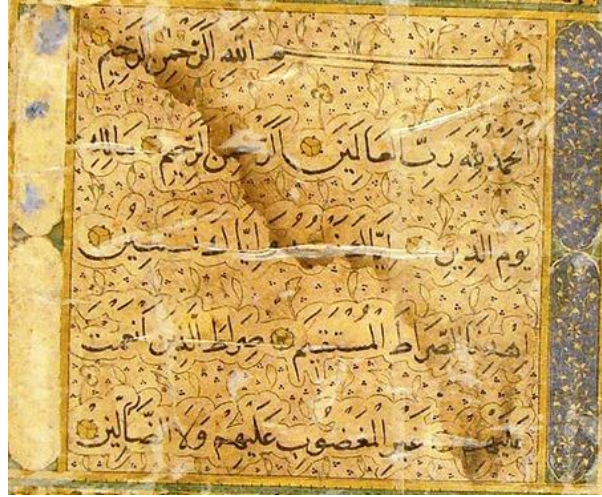 بسم الله الرحمن الرحيم
الحمد لله رب العالمين الرحمن الرحيم مالك
يوم الدين إياك نعبد وإياك نستعين
اهدنا الصراط المستقيم صراط الذين أنعمت
عليهم غير المغضوب عليهم ولا الضالين